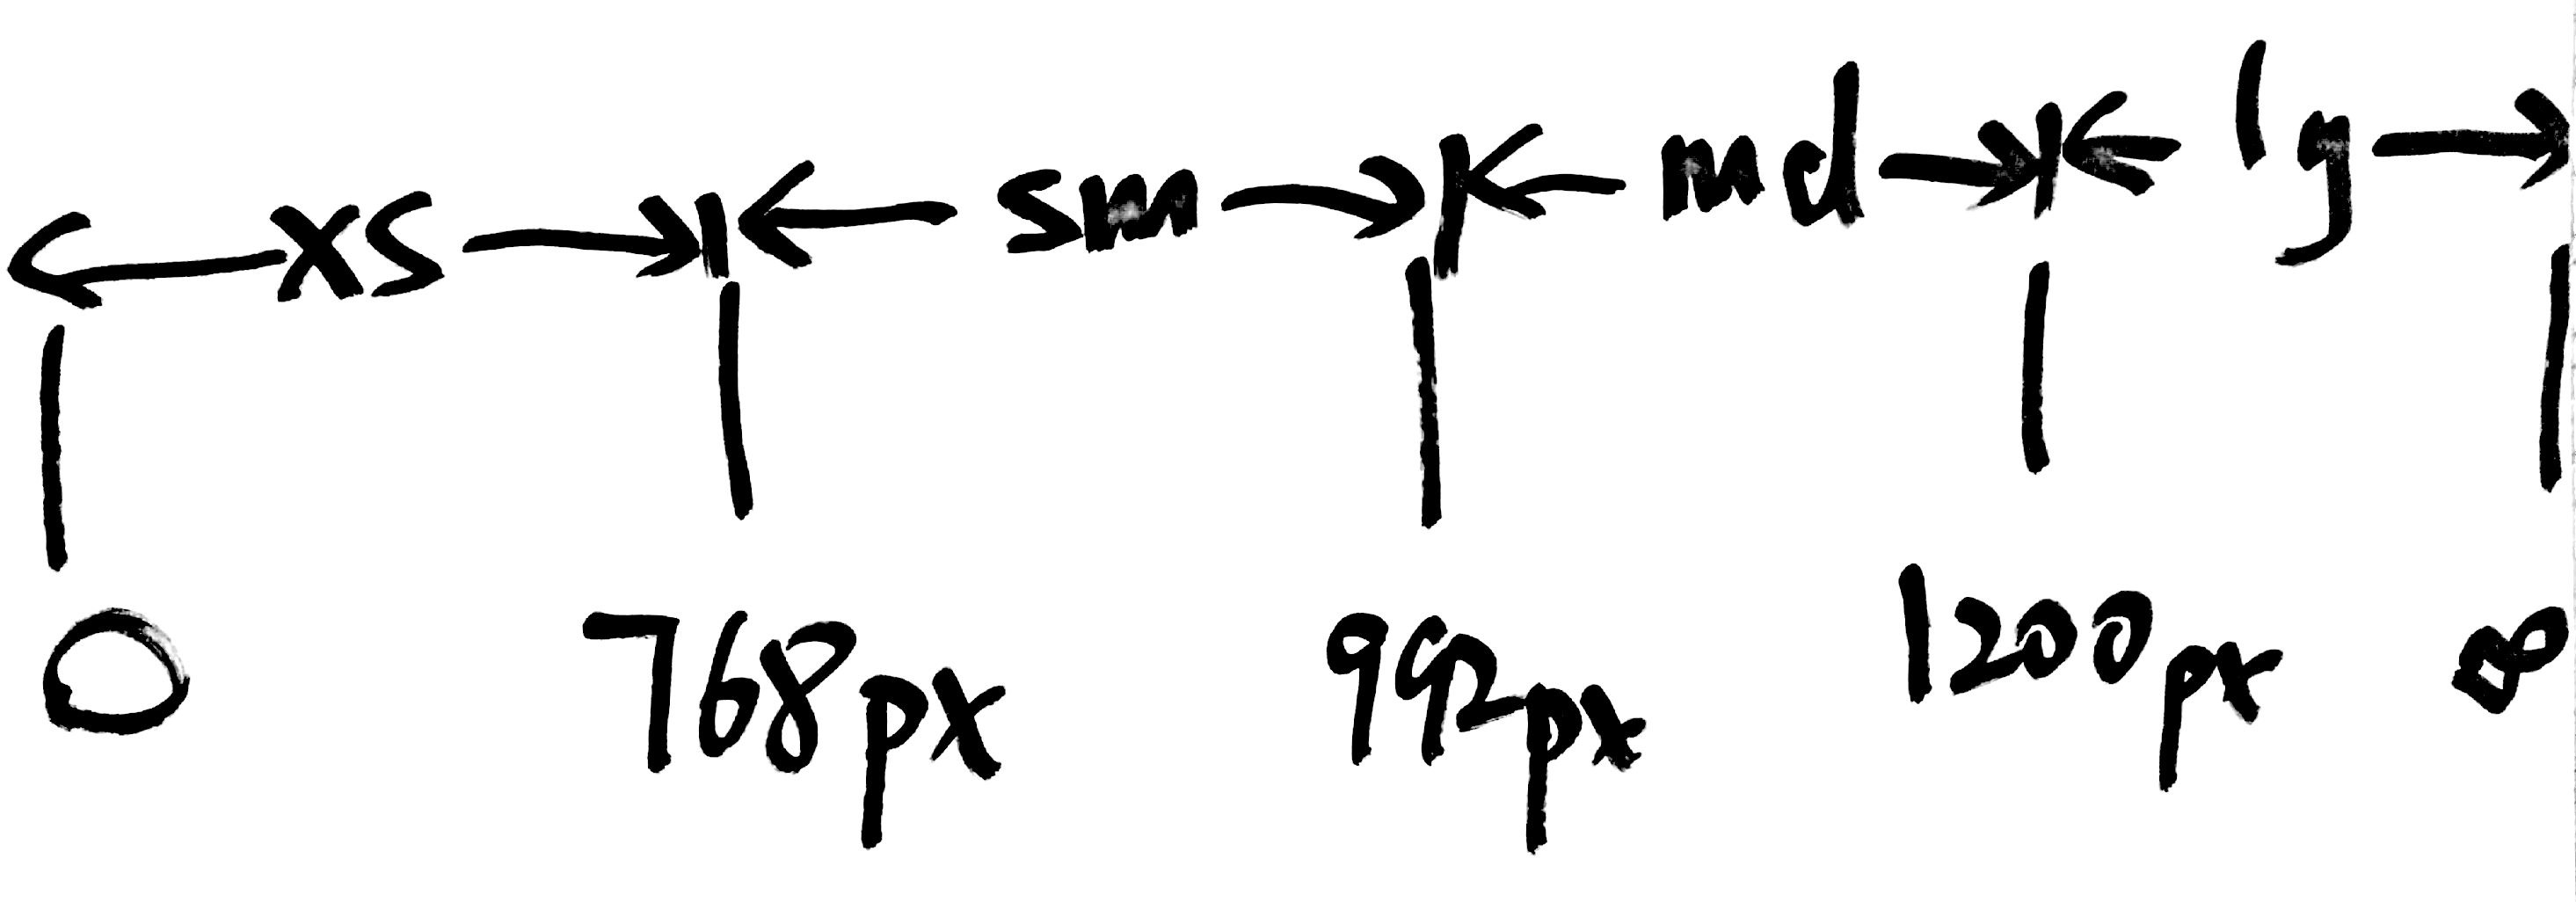 xs sm md lg
0 768px 992px 1200px ∞